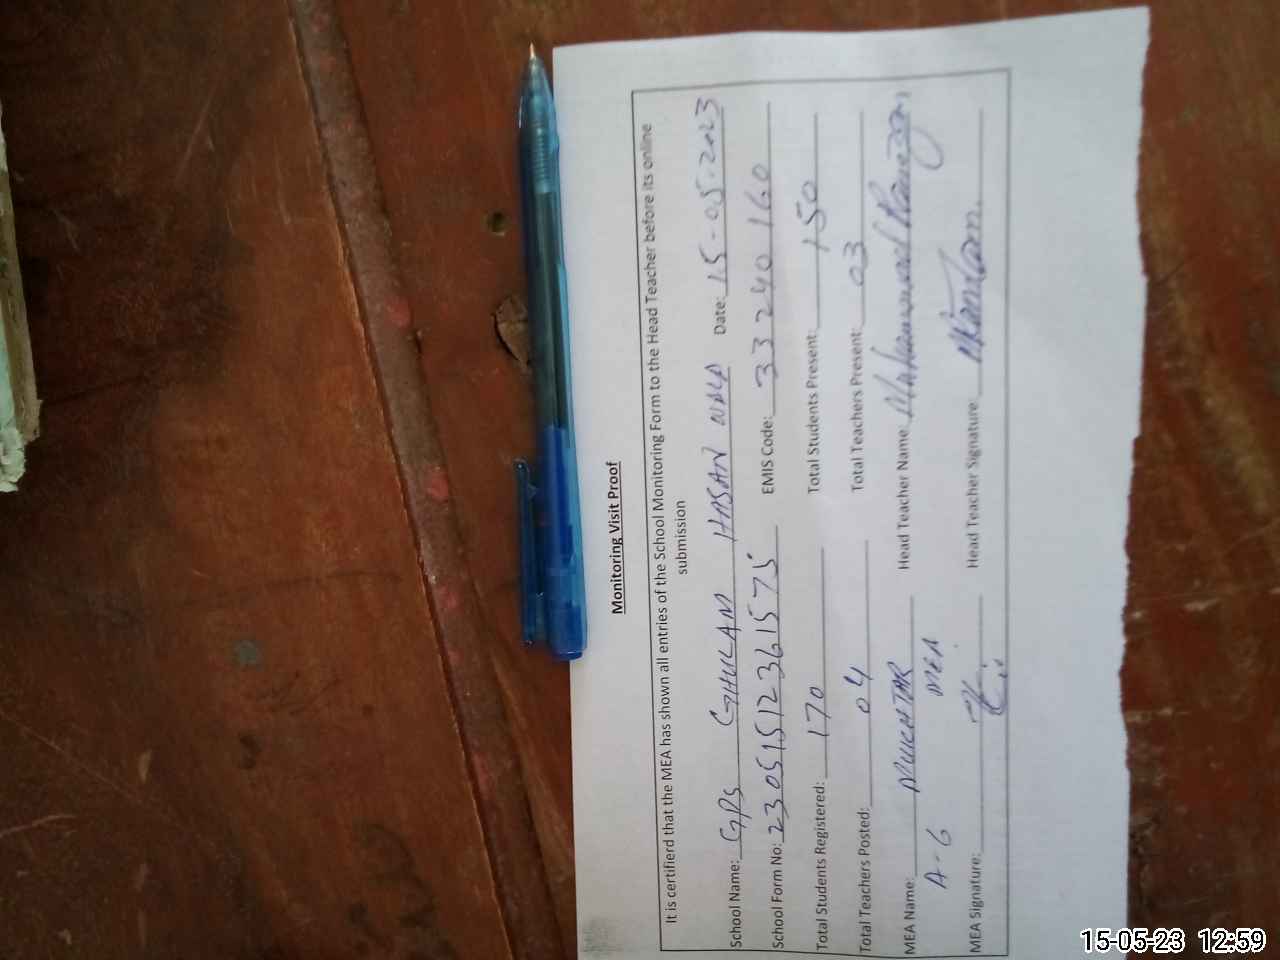 Monitoring Visit Proof
It is certifierd that the MEA has shown all entries of the School Monitoring Form to the Head Teacher before its online
submission
School Name: GPS GHULAM HASAN WALA Date: 15-05-2023
School Form No: 230515123615 75 EMIS Code: 33240160
Total Students Registered: 170 Total Students Present: 150
Total Teachers Posted: 04 Total Teachers Present: 03
MEA Name: MUKHTAR Head Teacher Name: Muhammad Ramzan
A-6 MEA
MEA Signature: Head Teacher Signature:
15-05-23 12:59